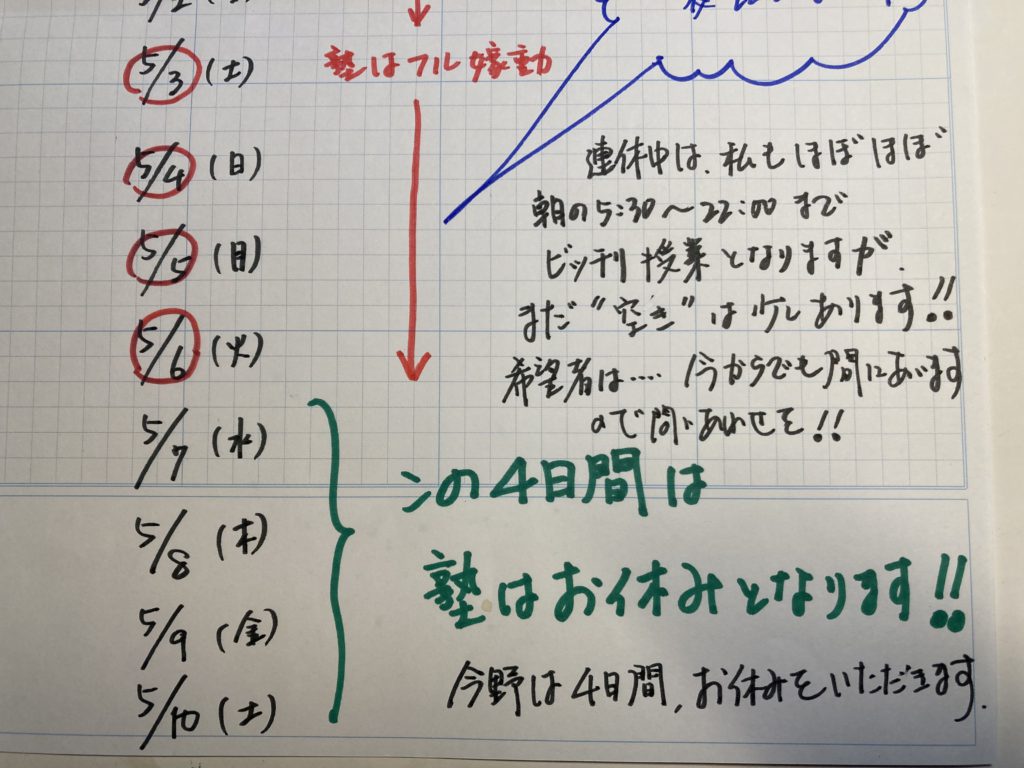 5/3 (土)
塾はフル嫁動
5/4 (日)
5/5 (月)
5/6 (火)
連休中は、私もほぼほぼ
朝の5:30~22:00まで
ビッチリ授業となりますが、
まだ"空き"は少しあります!!
希望者は…. 今からでも間にあいます
ので問いあわせを!!
5/7 (水)
5/8 (木)
5/9 (金)
5/10 (土)
この4日間は
塾はお休みとなります!!
今野は4日間、お休みをいただきます.